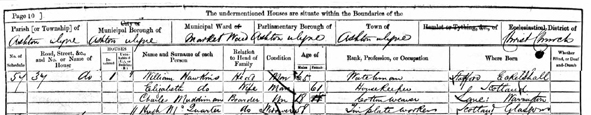 Page 10] The undermentioned Houses are situate within the Boundaries of the
Parish [or Township] of City or Municipal Ward of Parliamentary Borough of Town of Hamlet or Tything, &c., of Ecclesiastical District of
Ashton u Lyne Ashton u Lyne Market Ward Ashton u Lyne Ashton u Lyne Christ Church
No. of Schedule Road, Street, &c., and No. or Name of House HOUSES Name and Surname of each Person Relation to Head of Family Condition Age of Rank, Profession, or Occupation Where Born Whether Blind, or Deaf-and-Dumb
54 37 do 1 William Hawkins Head Mar 65 Watchman Stafford Eccleshall
Elizabeth do Wife Mar 61 Housekeeper Scotland
Charles Maddimans Boarder Un Cotton weaver Lanc: Warrington
Hugh Mc Quarter do 58 Tin plate worker Scotland Glasgow